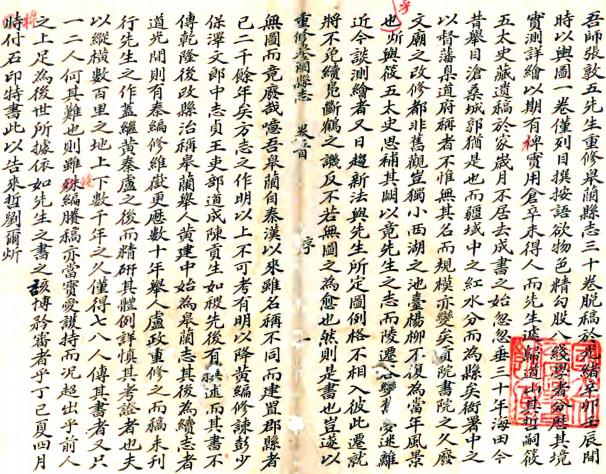 吾師張敦五先生重修皋蘭縣志三十卷脫稿於光緒辛卯壬辰閒
時以輿圖一卷僅列目撰按語欲物色精勾股八綫學者分歷其境
實測詳繪以期有裨實用倉卒未得人而先生遽歸道山其哲嗣筱
五太史藏遺稿於家歲月不居去成書之始忽忽垂三十年海田今
昔舉目滄桑城郭猶是也而疆域中之紅水分而為縣矣衙署中之
以督藩臬道府稱者不惟無其名而規模亦變矣貢院書院之久廢
文廟之改修都非舊觀豈獨小西湖之池臺楊柳不復為當年風景
也炘與筱五太史思補其闕以竟先生之志而陵遷谷變舊迷離
近今談測繪者又日趨新法與先生所定圖例格不相入彼此遷就
將不免續鳧斷鶴之譏反不若無圖之為愈也然則是書也豈遂以
重修皋蘭縣志 卷首 序
無圖而竟廢哉噫吾皋蘭自秦漢以來雖名稱不同而建置郡縣者
已二千餘年矣方志之作明以上不可考有明以降黃編修諫彭少
保澤文郎中志貞王吏部道成陳貢生如稷先後有撰述而其書不
傳乾隆後改縣治稱皋蘭舉人黃建中始為皋蘭志其後為續志者
道光閒則有秦編修維嶽更歷數十年舉人盧政重修之而稿未刊
行先生之作蓋繼黃秦盧之後而精研其體例詳慎其考證者也夫
以縱橫數百里之地上下數千年之久僅得七八人傳其書者又只
一二人何其難也則雖殘編賸稿亦當寶愛護持而況超出乎前人
之上足為後世所據依如先生之書之該博矜審者乎丁巳夏四月
將付石印特書此以告來哲劉爾炘